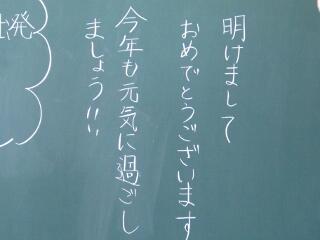 明けまして
おめでとうございます
今年も元気に過ごし
ましょう!!
発